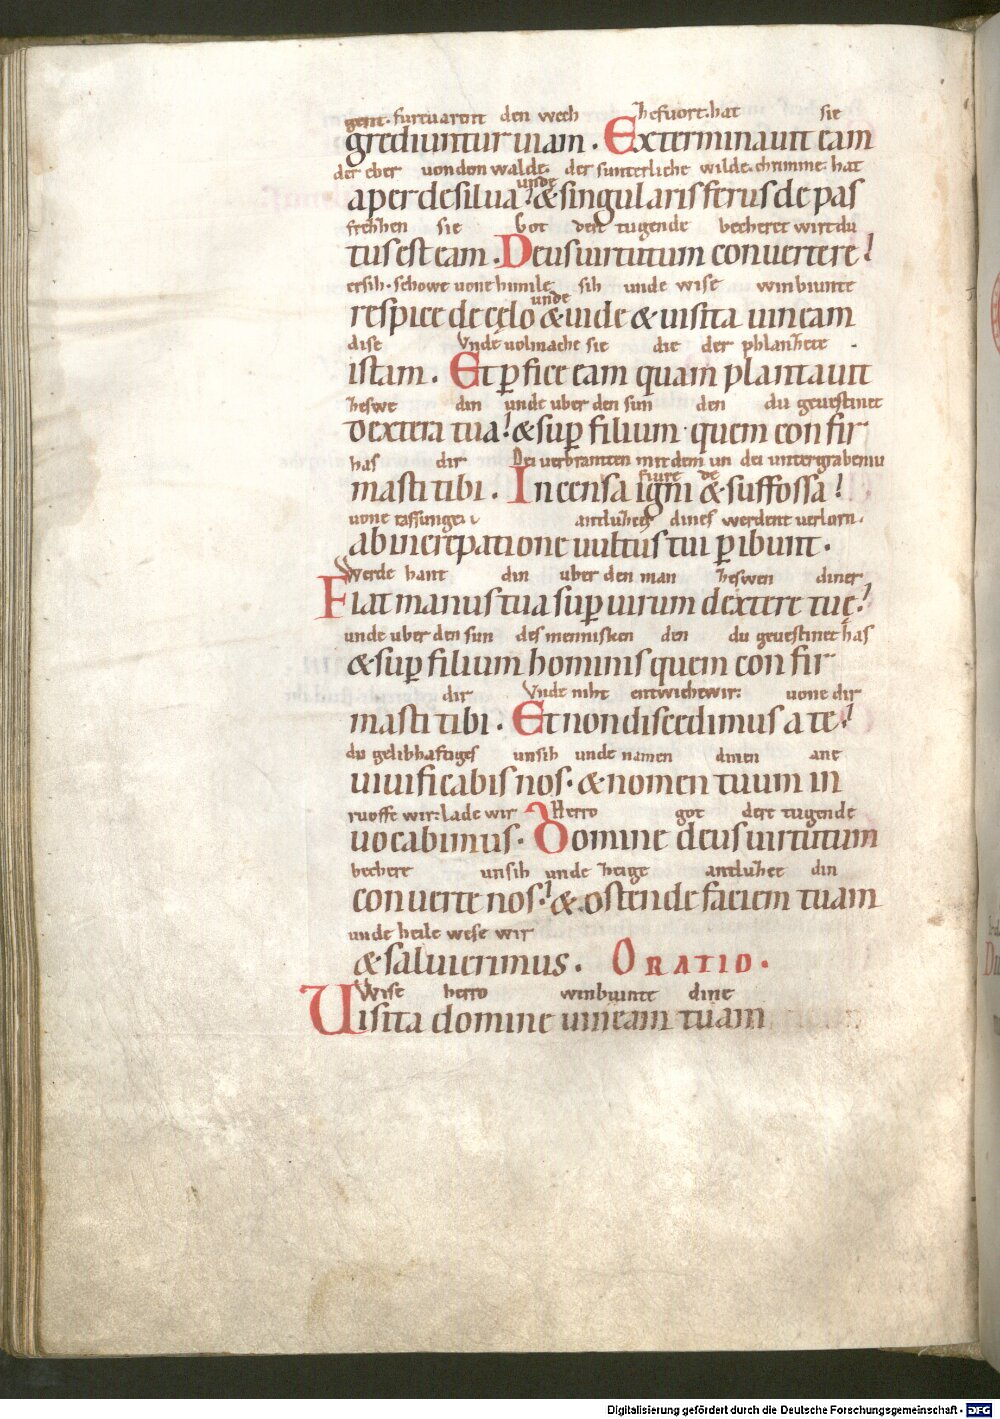 gent. furtuarent den wech hefuort. hat sie
grediuntur uiam. Exterminauit eam
der eber uon dem walde. der sunterliche wilde. chrimme. hat
unde
aper de silua? & singularis ferus de pas
frehhen sie Got dere tugende becheret wirt du
tus est eam. Deus uirtutum conuertere?
ersih. schowe uone himile sih unde wise winbiunte
unde
respice de cęlo & uide & uisita uineam
dise Unde uolmache sie die der phlanhete
istam. Et pfice eam quam plantauit
heswe din unde uber den sun den du geuestinet
dextera tua? & sup filium quem confir
has dir Dei verbranten mit dem un dei untergrabeniu
fiure de
masti tibi. Incensa igni & suffossa?
uone raffunge antluhes dines werdent verlorn.
ab increpatione uultus tui pibunt.
Werde hant din uber den man heswen diner
Fiat manus tua sup uirum dextere tuę?
unde uber den sun des mennisken den du geuestinet has
& sup filium hominis quem confir
dir Unde niht entwichewir: uone dir
masti tibi. Et non discedimus a te?
du gelibhaftiges unsih unde namen dinen ane
uiuificabis nos. & nomen tuum in
ruoffe wir: lade wir Herro got dere tugende
uocabimus. Domine deus uirtutum
bechere unsih unde heige antluhee din
conuerte nos? & ostende faciem tuam
unde heile wese wir
& salui erimus. ORATIO.
Wise herro winbiunte dine
Uisita domine uineam tuam
Digitalisierung gefördert durch die Deutsche Forschungsgemeinschaft - DFG